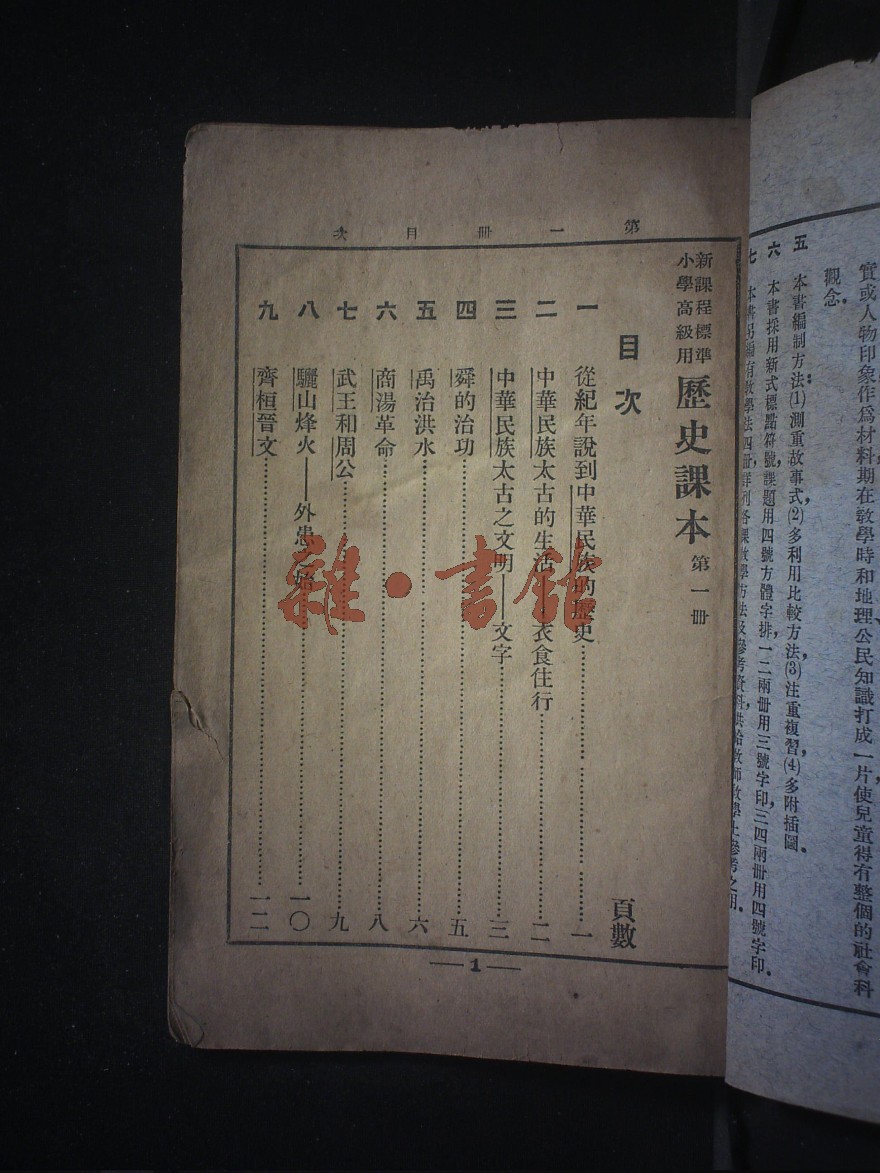 實或人物印象作爲材料,期在敎學時和地理公民知識打成一片,使兒童得有整個的社會科
觀念.
五 本書編制方法:(1)測重故事式,(2)多利用比較方法,(3)注重複習,(4)多附插圖.
六 本書採用新式標點符號,課題用四號方體字排,一二兩冊用三號字印,三四兩冊用四號字印.
七 本書另編有敎學法四冊,詳列各課敎學方法及參考資料,供給敎師敎學上參考之用.
第一冊目次
新課程標準
小學高級用
歷史課本 第一冊
目次 頁數
一 從紀年說到中華民族的歷史 一
二 中華民族太古的生活——衣食住行 二
三 中華民族太古之文明——文字 三
四 舜的治功 五
五 禹治洪水 六
六 商湯革命 八
七 武王和周公 九
八 驪山烽火——外患之始 一〇
九 齊桓晉文 一二
—1—
雜·書館